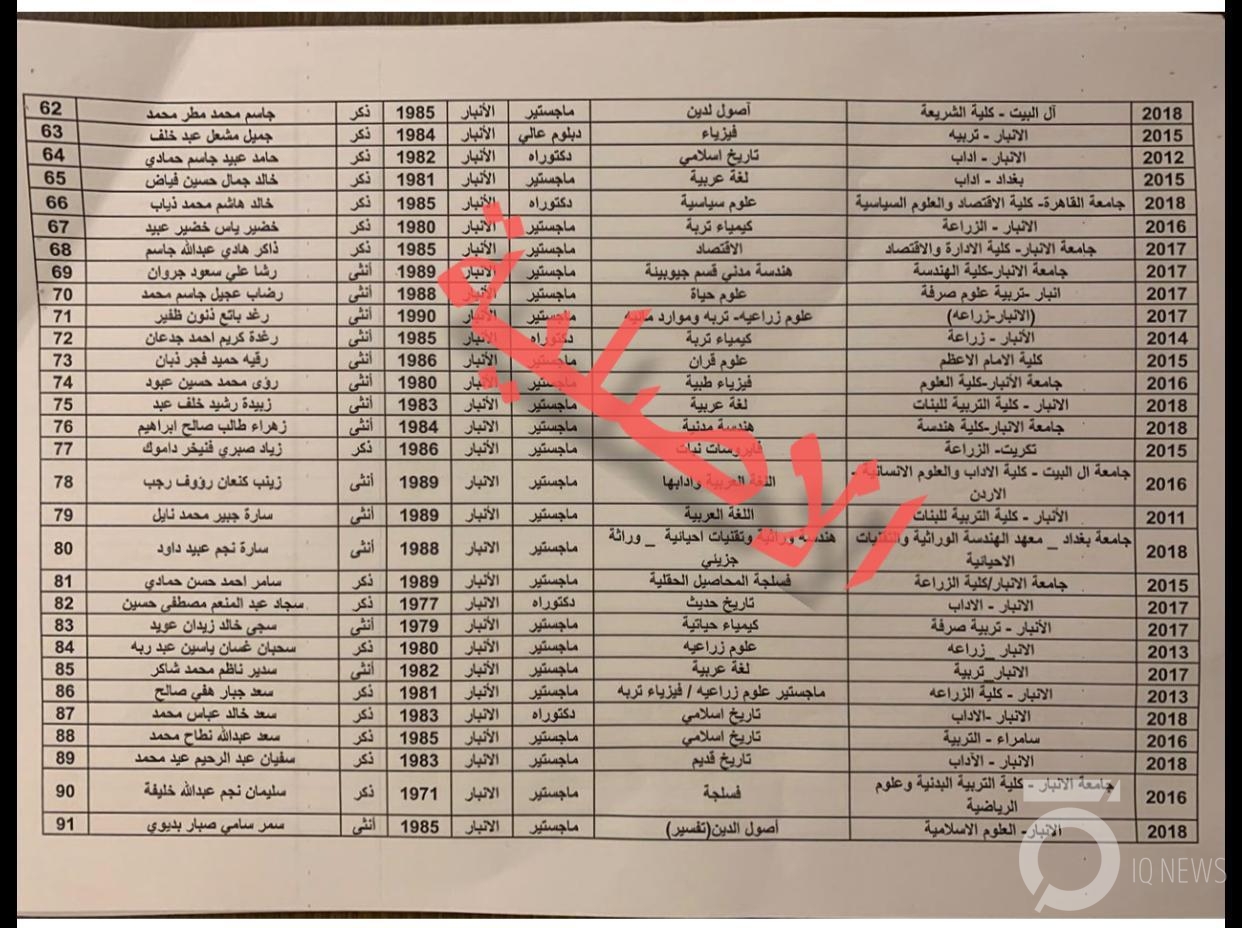 62 جاسم محمد مطر محمد ذكر 1985 الأنبار ماجستير أصول لدين آل البيت - كلية الشريعة 2018
63 جميل مشعل عبد خلف ذكر 1984 الأنبار دبلوم عالي فيزياء الانبار - تربيه 2015
64 حامد عبيد جاسم حمادي ذكر 1982 الأنبار دكتوراه تاريخ اسلامي الانبار - اداب 2012
65 خالد جمال حسين فياض ذكر 1981 الأنبار ماجستير لغة عربية بغداد - اداب 2015
66 خالد هاشم محمد ذياب ذكر 1985 الأنبار دكتوراه علوم سياسية جامعة القاهرة- كلية الاقتصاد والعلوم السياسية 2018
67 خضير ياس خضير عبيد ذكر 1980 الأنبار ماجستير كيمياء تربة الانبار - الزراعة 2016
68 ذاكر هادي عبدالله جاسم ذكر 1985 الأنبار ماجستير الاقتصاد جامعة الانبار- كلية الادارة والاقتصاد 2017
69 رشا علي سعود جروان أنثى 1989 الانبار ماجستير هندسة مدني قسم جيوبيئة جامعة الانبار-كلية الهندسة 2017
70 رضاب عجيل جاسم محمد أنثى 1988 الأنبار ماجستير علوم حياة انبار -تربية علوم صرفة 2017
71 رغد باتع ذنون ظفير أنثى 1990 الانبار ماجستير علوم زراعيه- تربه وموارد مائيه (الانبار-زراعه) 2017
72 رغدة كريم احمد جدعان أنثى 1985 الأنبار دكتوراه كيمياء تربة الأنبار - زراعة 2014
73 رقيه حميد فجر ذبان أنثى 1986 الأنبار ماجستير علوم قران كلية الامام الاعظم 2015
74 رؤى محمد حسين عبود أنثى 1980 الأنبار ماجستير فيزياء طبية جامعة الأنبار-كلية العلوم 2016
75 زبيدة رشيد خلف عبد أنثى 1983 الأنبار ماجستير لغة عربية الانبار - كلية التربية للبنات 2018
76 زهراء طالب صالح ابراهيم أنثى 1984 الأنبار ماجستير هندسة مدنية جامعة الانبار-كلية هندسة 2018
77 زياد صبري فنيخر داموك ذكر 1986 الأنبار ماجستير فايروسات نبات تكريت- الزراعة 2015
78 زينب كنعان رؤوف رجب أنثى 1989 الانبار ماجستير اللغة العربية وادابها جامعة ال البيت - كلية الاداب والعلوم الانسانية -
الاردن 2016
79 سارة جبير محمد نايل أنثى 1989 الأنبار ماجستير اللغة العربية الأنبار - كلية التربية للبنات 2011
80 سارة نجم عبيد داود أنثى 1988 الانبار ماجستير هندسه وراثية وتقنيات احيائية _ وراثة جامعة بغداد _ معهد الهندسة الوراثية والتقنيات
جزيئي الاحيائية 2018
81 سامر احمد حسن حمادي ذكر 1989 الأنبار ماجستير فسلجة المحاصيل الحقلية جامعة الانبار/كلية الزراعة 2015
82 سجاد عبد المنعم مصطفى حسين ذكر 1977 الانبار دكتوراه تاريخ حديث الانبار - الاداب 2017
83 سجى خالد زيدان عويد أنثى 1979 الأنبار ماجستير كيمياء حياتية الأنبار - تربية صرفة 2017
84 سحبان غسان ياسين عبد ربه ذكر 1980 الأنبار ماجستير علوم زراعيه الانبار _زراعه 2013
85 سدير ناظم محمد شاكر أنثى 1982 الأنبار ماجستير لغة عربية الانبار_تربية 2017
86 سعد جبار هفي صالح ذكر 1981 الأنبار ماجستير ماجستير علوم زراعيه / فيزياء تربه الانبار - كلية الزراعه 2013
87 سعد خالد عباس محمد ذكر 1983 الانبار دكتوراه تاريخ اسلامي الانبار -الاداب 2018
88 سعد عبدالله نطاح محمد ذكر 1985 الأنبار ماجستير تاريخ اسلامي سامراء - التربية 2016
89 سفيان عبد الرحيم عبد محمد ذكر 1983 الأنبار ماجستير تاريخ قديم الانبار - الآداب 2018
90 سليمان نجم عبدالله خليفة ذكر 1971 الانبار ماجستير فسلجة جامعة الانبار - كلية التربية البدنية وعلوم
الرياضية 2016
91 سمر سامي صبار بديوي أنثى 1985 الانبار ماجستير أصول الدين(تفسير) الانبار- العلوم الاسلامية 2018
الاصلية
IQ NEWS